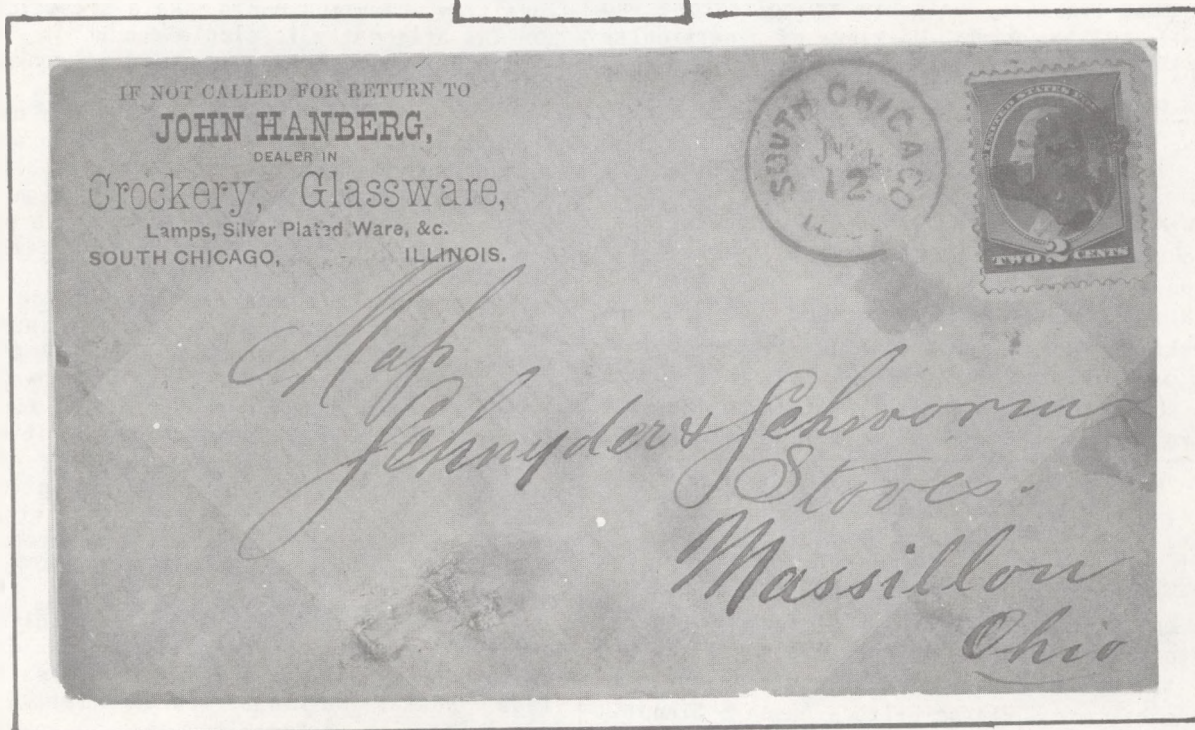 IF NOT CALLED FOR RETURN TO
JOHN HANBERG,
DEALER IN
Crockery, Glassware,
Lamps, Silver Plated Ware, &c.
SOUTH CHICAGO, ILLINOIS.
SOUTH CHICAGO
12
UNITED STATES
TWO 2 CENTS
Schnyder & Schworm
Stoves.
Massillon
Ohio